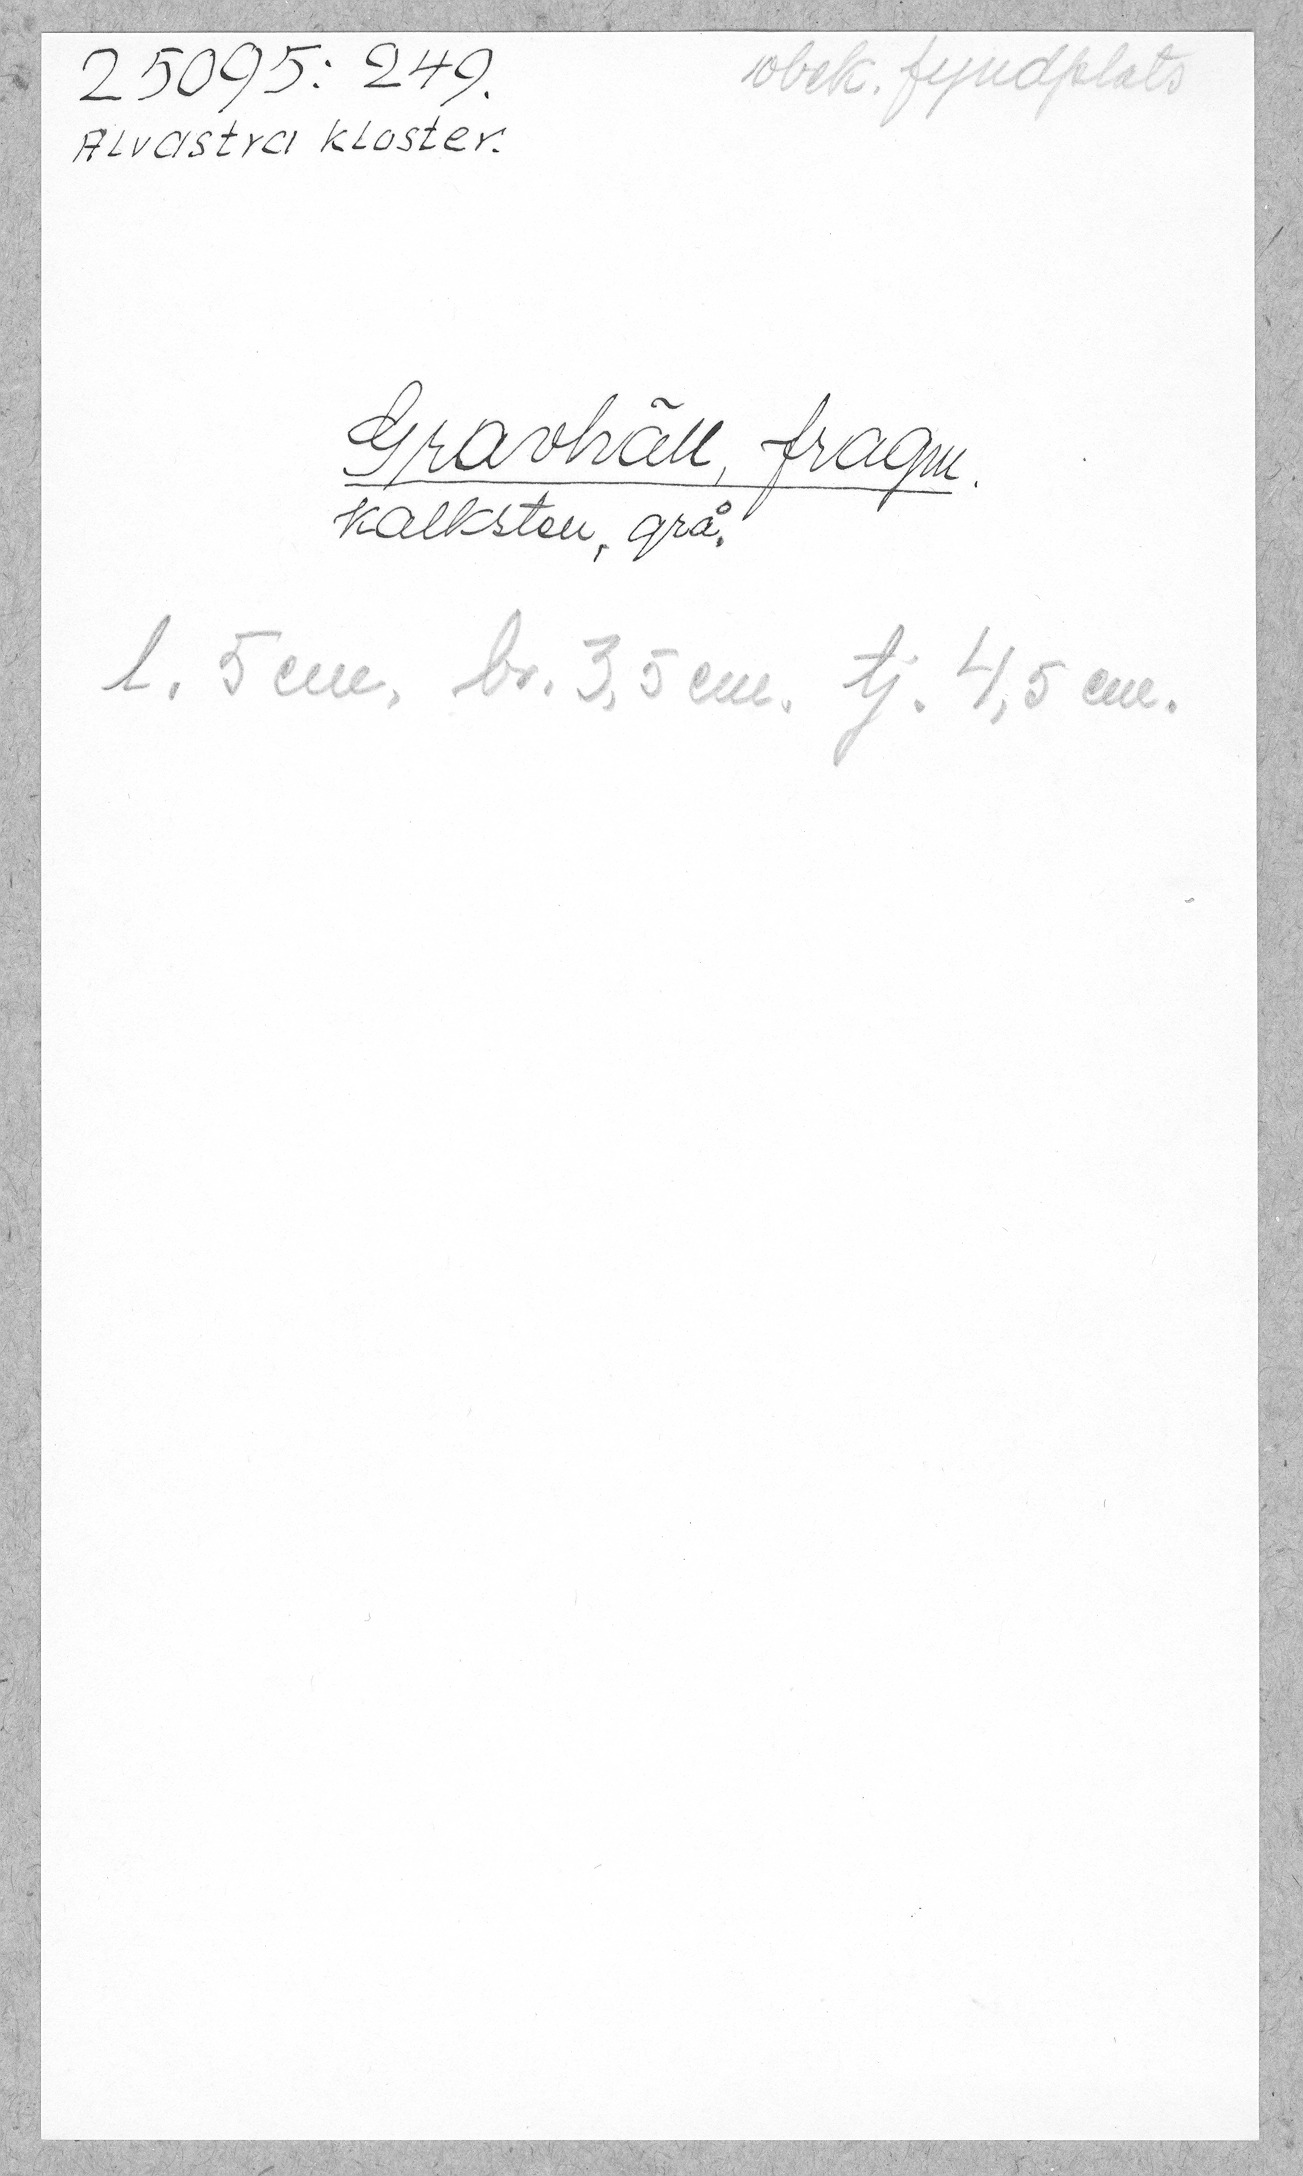 25095: 249.
obek. fyndplats
Alvastra kloster.
Gravhäll, fragm.
kalksten, grå.
l. 5 cm. br. 3,5 cm. tj. 4,5 cm.